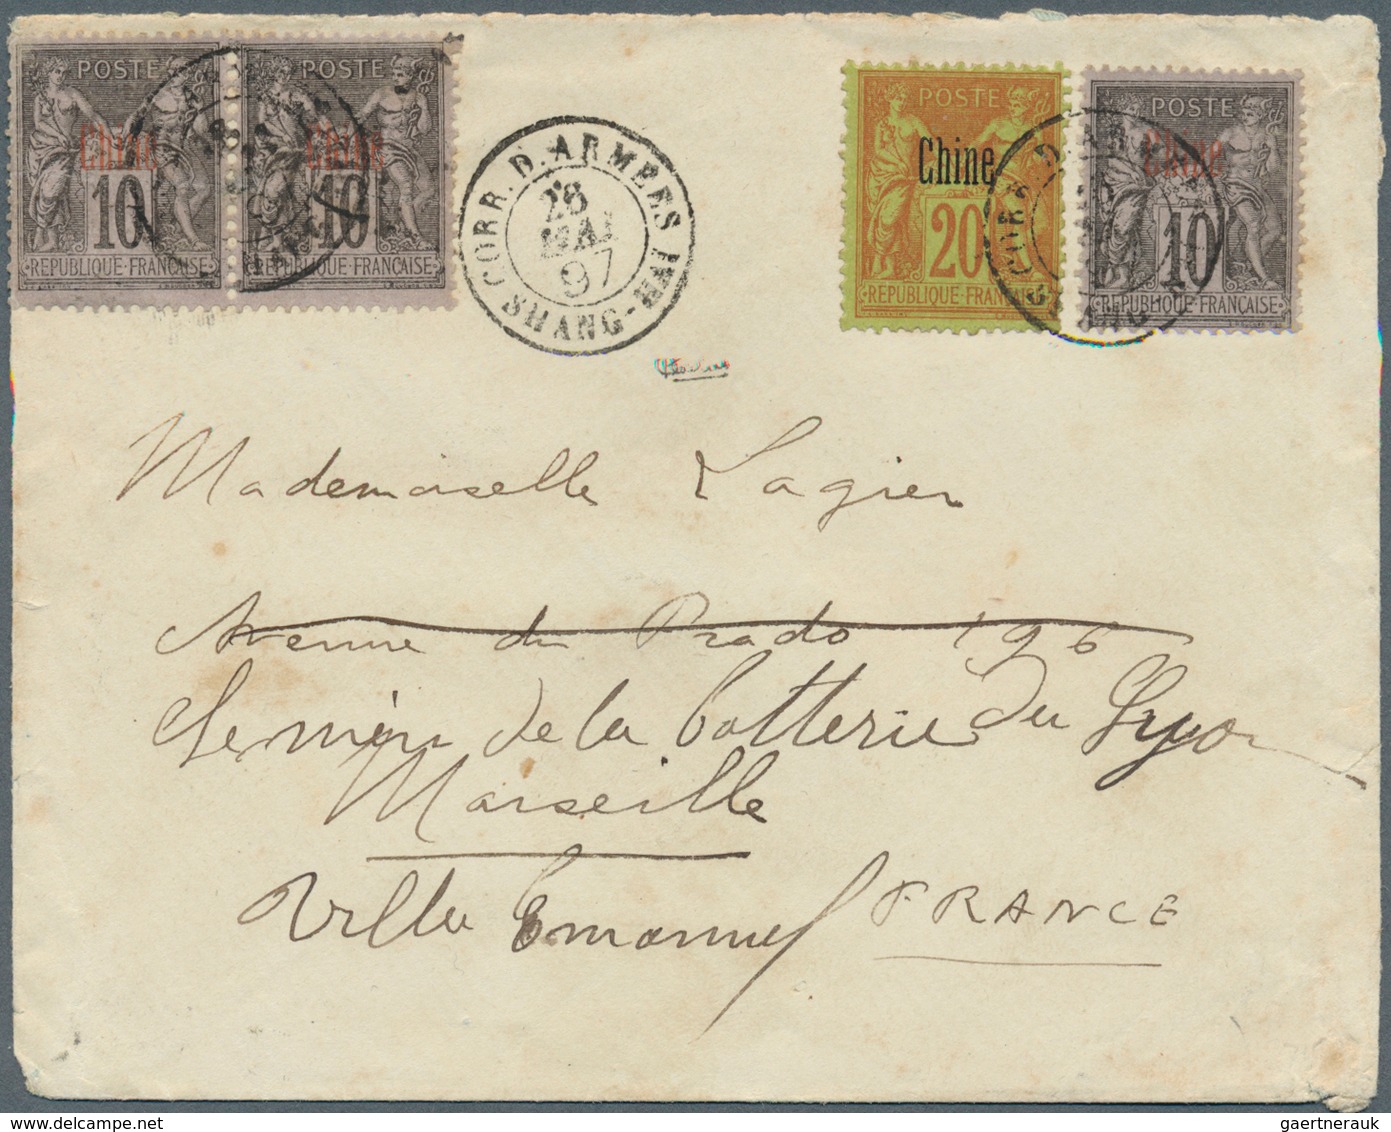 POSTE
Chine
10
RÉPUBLIQUE FRANÇAISE
POSTE
Chine
10
RÉPUBLIQUE FRANÇAISE
CORR. D. ARMEES
28
MAI
97
SHANG-HAI
POSTE
Chine
20
RÉPUBLIQUE FRANÇAISE
POSTE
Chine
10
RÉPUBLIQUE FRANÇAISE
Mademoiselle Lagier
Avenue du Prado 196
Chemin de la batterie du Lyon
Marseille
Villa Emanuel FRANCE
gaertnerauk @ delcampe.net